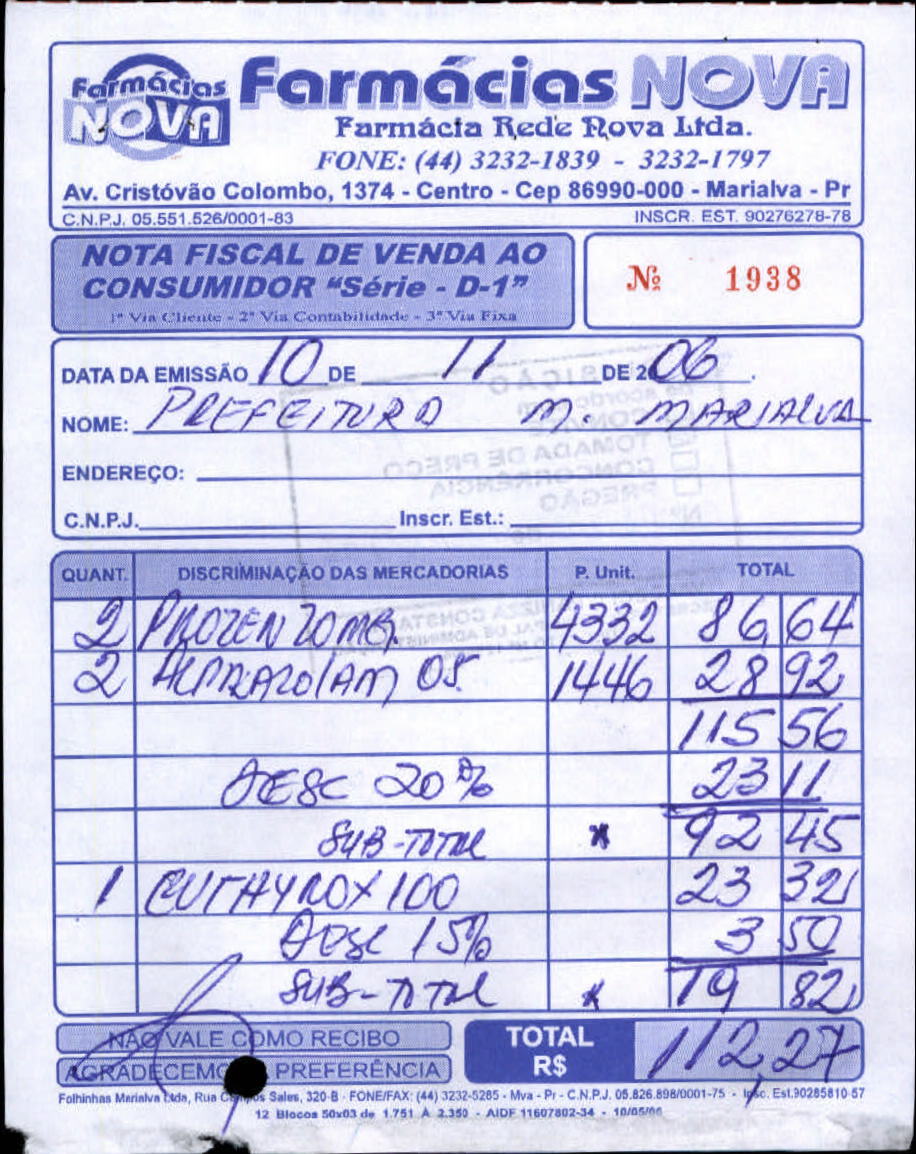 Farmácias NOVA
Farmácias NOVA
Farmácia Rede Nova Ltda.
FONE: (44) 3232-1839 - 3232-1797
Av. Cristóvão Colombo, 1374 - Centro - Cep 86990-000 - Marialva - Pr
C.N.P.J. 05.551.526/0001-83 INSCR. EST. 90276278-78
NOTA FISCAL DE VENDA AO
CONSUMIDOR "Série - D-1"
1ª Via Cliente - 2ª Via Contabilidade - 3ª Via Fixa
Nº 1938
DATA DA EMISSÃO 10 DE 11 DE 2006.
NOME: PREFEITURA M. MARIALVA
TOMADA DE PREÇO
CONCORRÊNCIA
PREGÃO
ENDEREÇO:
C.N.P.J. Inscr. Est.:
QUANT. DISCRIMINAÇÃO DAS MERCADORIAS P. Unit. TOTAL
2 PROZEN 20MG. 4332 86 64
2 ALPRAZOLAM 05 1446 28 92
115 56
DESC 20% 23 11
SUB-TOTAL x 92 45
1 EUTHYROX 100 23 32
DESC 15% 3 50
SUB-TOTAL x 19 82
NÃO VALE COMO RECIBO
AGRADECEMOS PREFERÊNCIA
TOTAL R$ 112,27
Folhinhas Marialva Ltda, Rua Campos Sales, 320-B - FONE/FAX: (44) 3232-5285 - Mva - Pr - C.N.P.J. 05.826.898/0001-75 - Insc. Est.90285810-57
12 Blocos 50x03 de 1.751 À 2.350 - AIDF 11607802-34 - 10/05/06